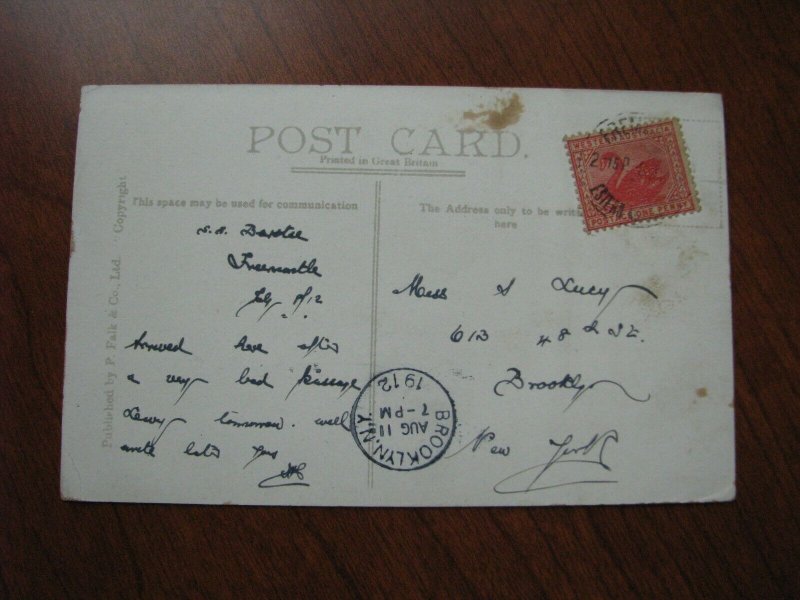 POST CARD.
Printed in Great Britain
This space may be used for communication
The Address only to be writ
here
Published by P. Falk & Co., Ltd. Copyright
WESTERN AUSTRALIA
POSTAGE ONE PENNY
S.S.
Freemantle
/12
Arrived here after
a very bad passage
Leavg tomorrow. will
write later yours
Miss S Lucy
613 48th St.
Brooklyn
New York
BROOKLYN, N.Y.
AUG 11
7-PM
1912